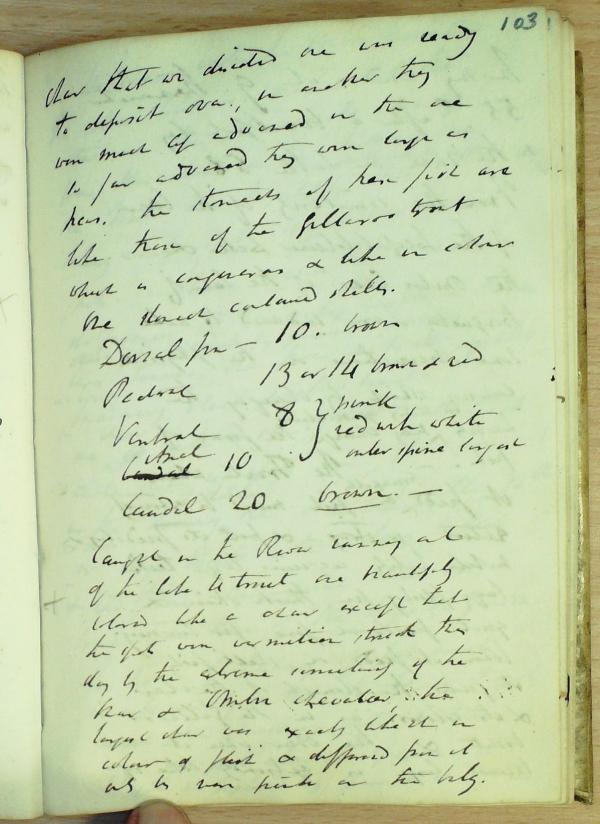 103
char that we dissected one was ready
to deposit ova, in another they
were much less advanced in the one
so far advanced they were large as
peas. The stomachs of these fish are
like those of the Gillaroo trout
which is congenerous & like in colour
One stomach contained shells.
Dorsal fin – 10. brown
Pectoral 13 or 14 brown & red
Ventral 8 } pink
Anal 10 red with white
outer spine largest
Caudal 20 brown. —
Caught in the River running out
of the lake the trout are beautifully
colored like a char except that
the spots were vermilion struck this
day by the extreme similarity of the
char & Ombre chevalier, the
largest char was exactly like it in
colour of flesh & differed from it
only by more pink on the belly.